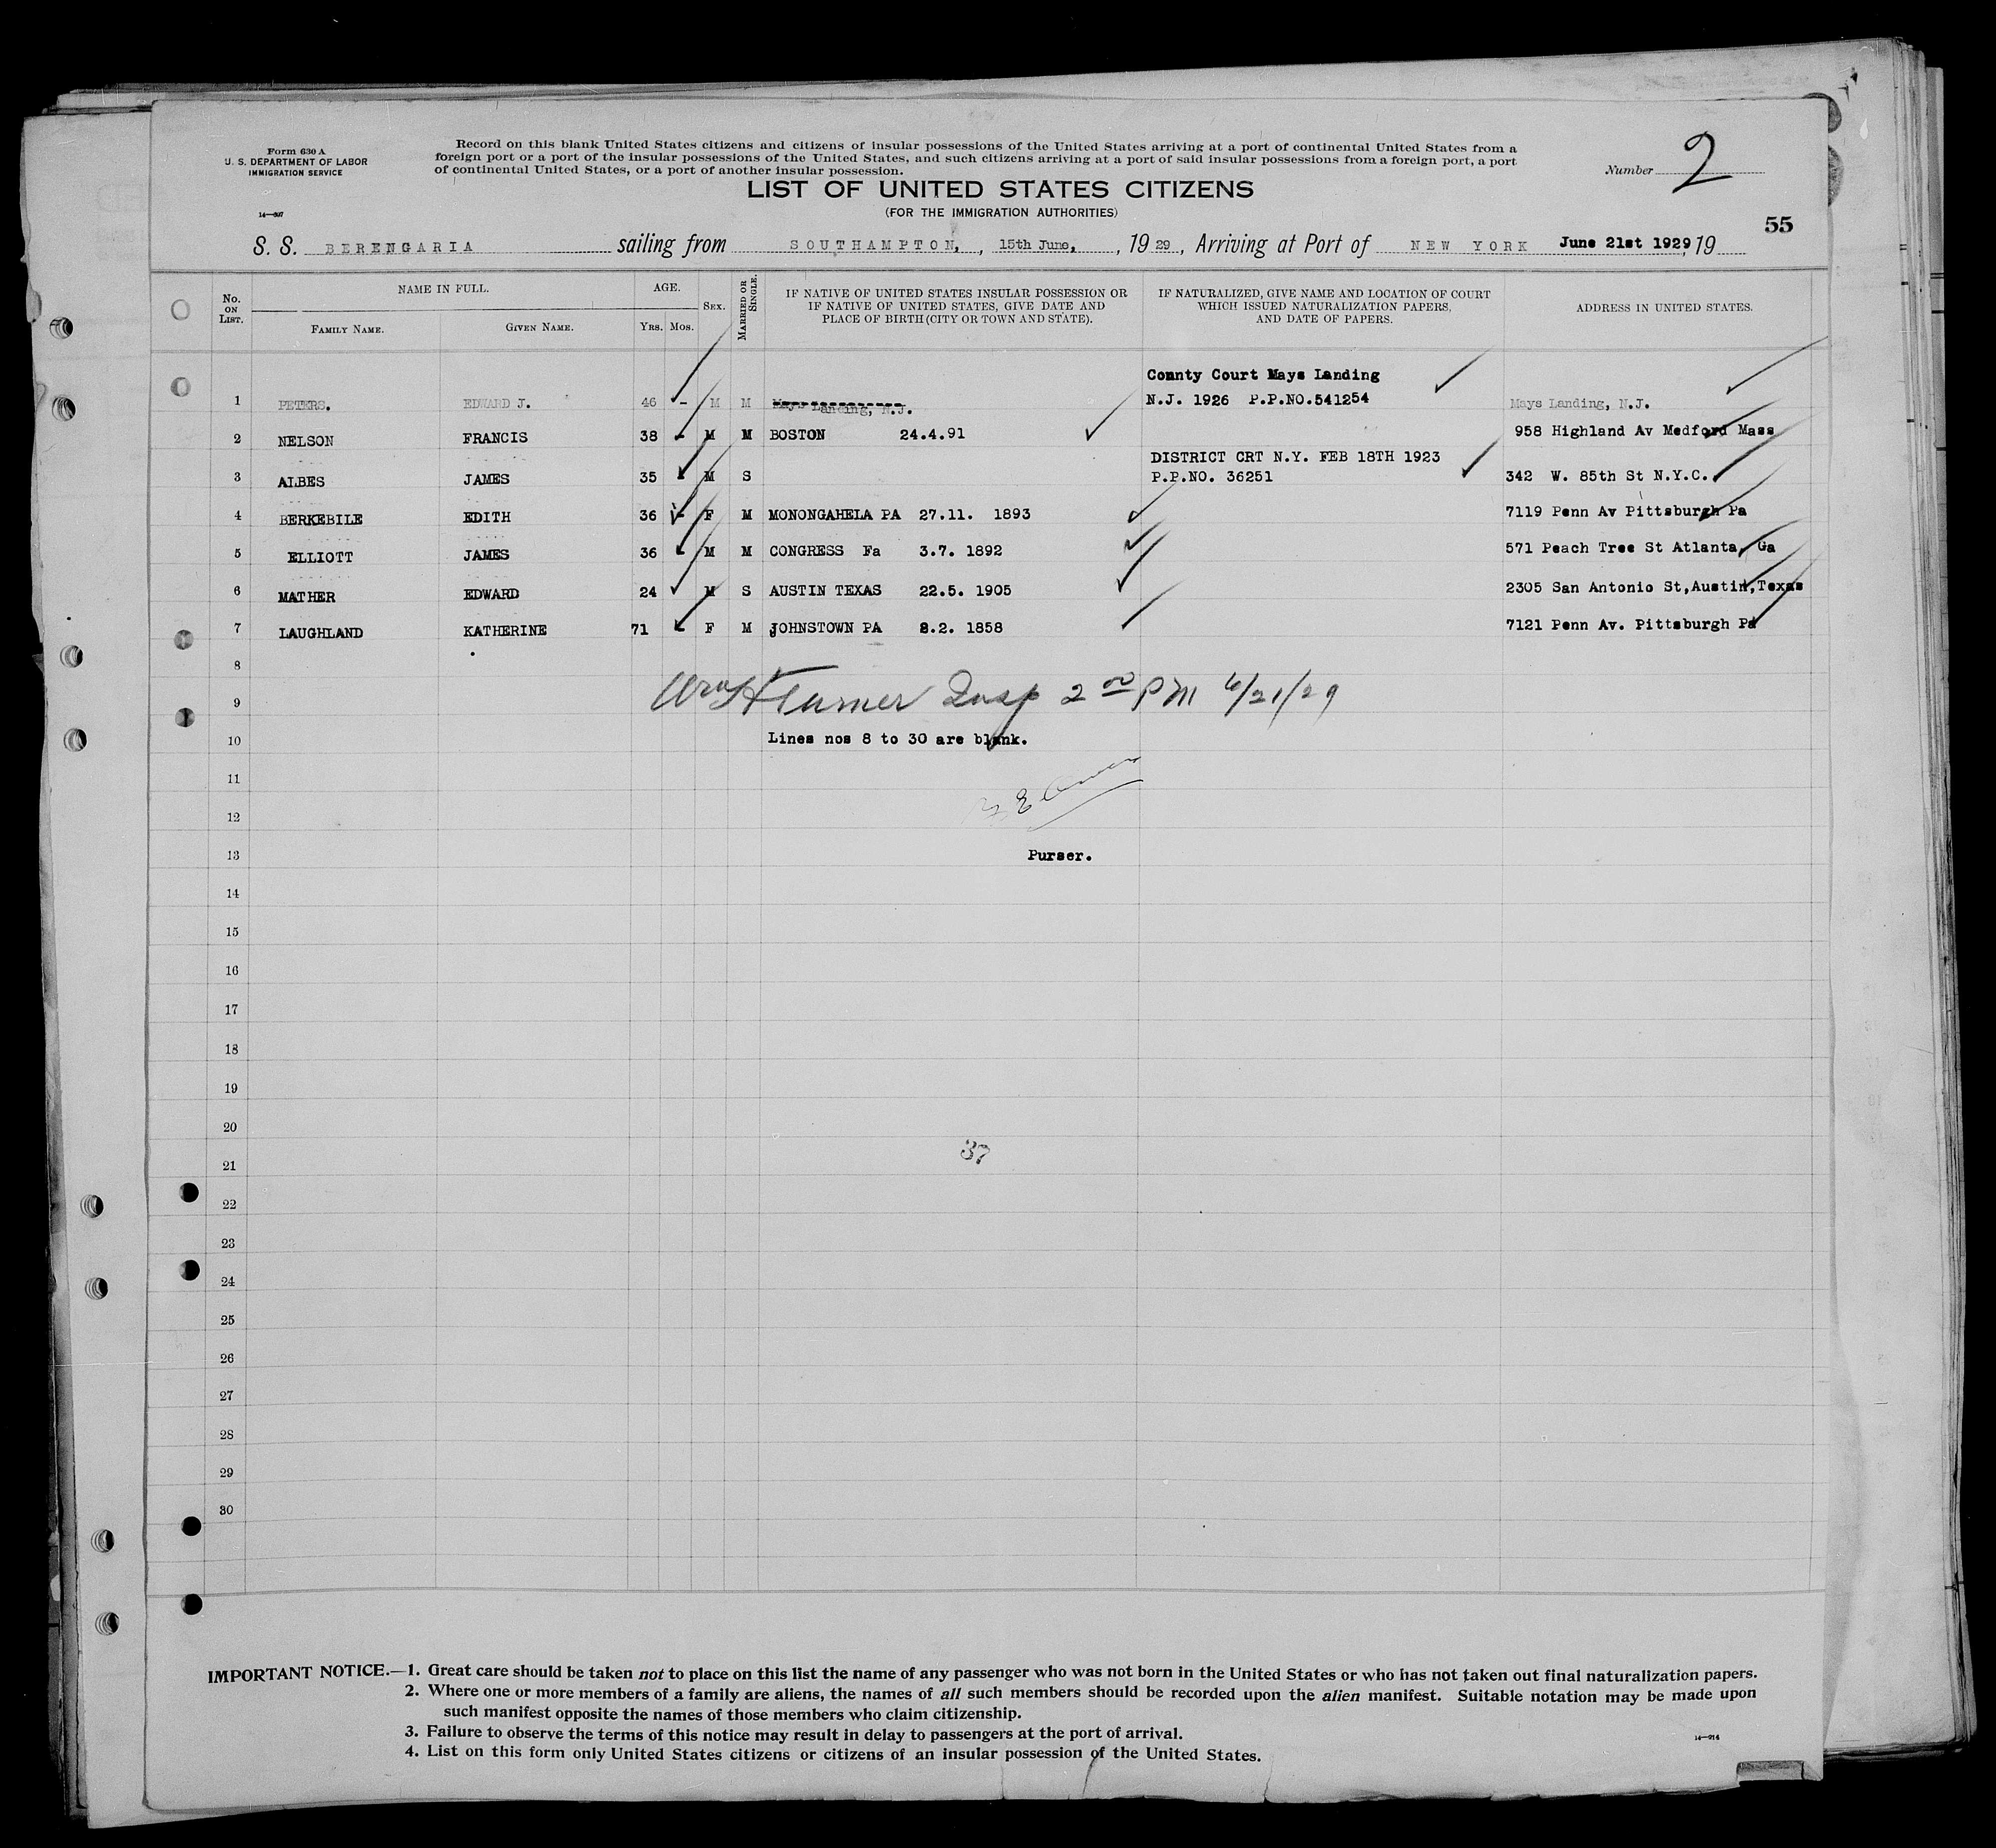 Form 630 A
U. S. DEPARTMENT OF LABOR
IMMIGRATION SERVICE
14—907
Record on this blank United States citizens and citizens of insular possessions of the United States arriving at a port of continental United States from a
foreign port or a port of the insular possessions of the United States, and such citizens arriving at a port of said insular possessions from a foreign port, a port
of continental United States, or a port of another insular possession.
Number 2
LIST OF UNITED STATES CITIZENS
(FOR THE IMMIGRATION AUTHORITIES)
55
S. S. BERENGARIA sailing from SOUTHAMPTON, , 15th June, , 19 29 , Arriving at Port of NEW YORK June 21st 1929, 19
No. ON LIST.
NAME IN FULL.
FAMILY NAME. GIVEN NAME.
AGE.
YRS. MOS.
SEX.
MARRIED OR SINGLE.
IF NATIVE OF UNITED STATES INSULAR POSSESSION OR
IF NATIVE OF UNITED STATES, GIVE DATE AND
PLACE OF BIRTH (CITY OR TOWN AND STATE).
IF NATURALIZED, GIVE NAME AND LOCATION OF COURT
WHICH ISSUED NATURALIZATION PAPERS,
AND DATE OF PAPERS.
ADDRESS IN UNITED STATES.
County Court Mays Landing
1 PETERS. EDWARD J. 46 - M M Mays Landing, N.J. N.J. 1926 P.P.NO.541254 Mays Landing, N.J.
2 NELSON FRANCIS 38 - M M BOSTON 24.4.91 958 Highland Av Medford Mass
DISTRICT CRT N.Y. FEB 18TH 1923
3 ALBES JAMES 35 - M S P.P.NO. 36251 342 W. 85th St N.Y.C.
4 BERKEBILE EDITH 36 - F M MONONGAHELA PA 27.11. 1893 7119 Penn Av Pittsburgh Pa
5 ELLIOTT JAMES 36 - M M CONGRESS Fa 3.7. 1892 571 Peach Tree St Atlanta, Ga
6 MATHER EDWARD 24 M S AUSTIN TEXAS 22.5. 1905 2305 San Antonio St,Austin,Texas
7 LAUGHLAND KATHERINE 71 - F M JOHNSTOWN PA 8.2. 1858 7121 Penn Av. Pittsburgh Pa
8
9 Wm H Turner Insp 2 00 PM 6/21/29
10 Lines nos 8 to 30 are blank.
11
12
13 Purser.
14
15
16
17
18
19
20
37
21
22
23
24
25
26
27
28
29
30
IMPORTANT NOTICE.—1. Great care should be taken not to place on this list the name of any passenger who was not born in the United States or who has not taken out final naturalization papers.
2. Where one or more members of a family are aliens, the names of all such members should be recorded upon the alien manifest. Suitable notation may be made upon
such manifest opposite the names of those members who claim citizenship.
3. Failure to observe the terms of this notice may result in delay to passengers at the port of arrival.
4. List on this form only United States citizens or citizens of an insular possession of the United States.
14—914